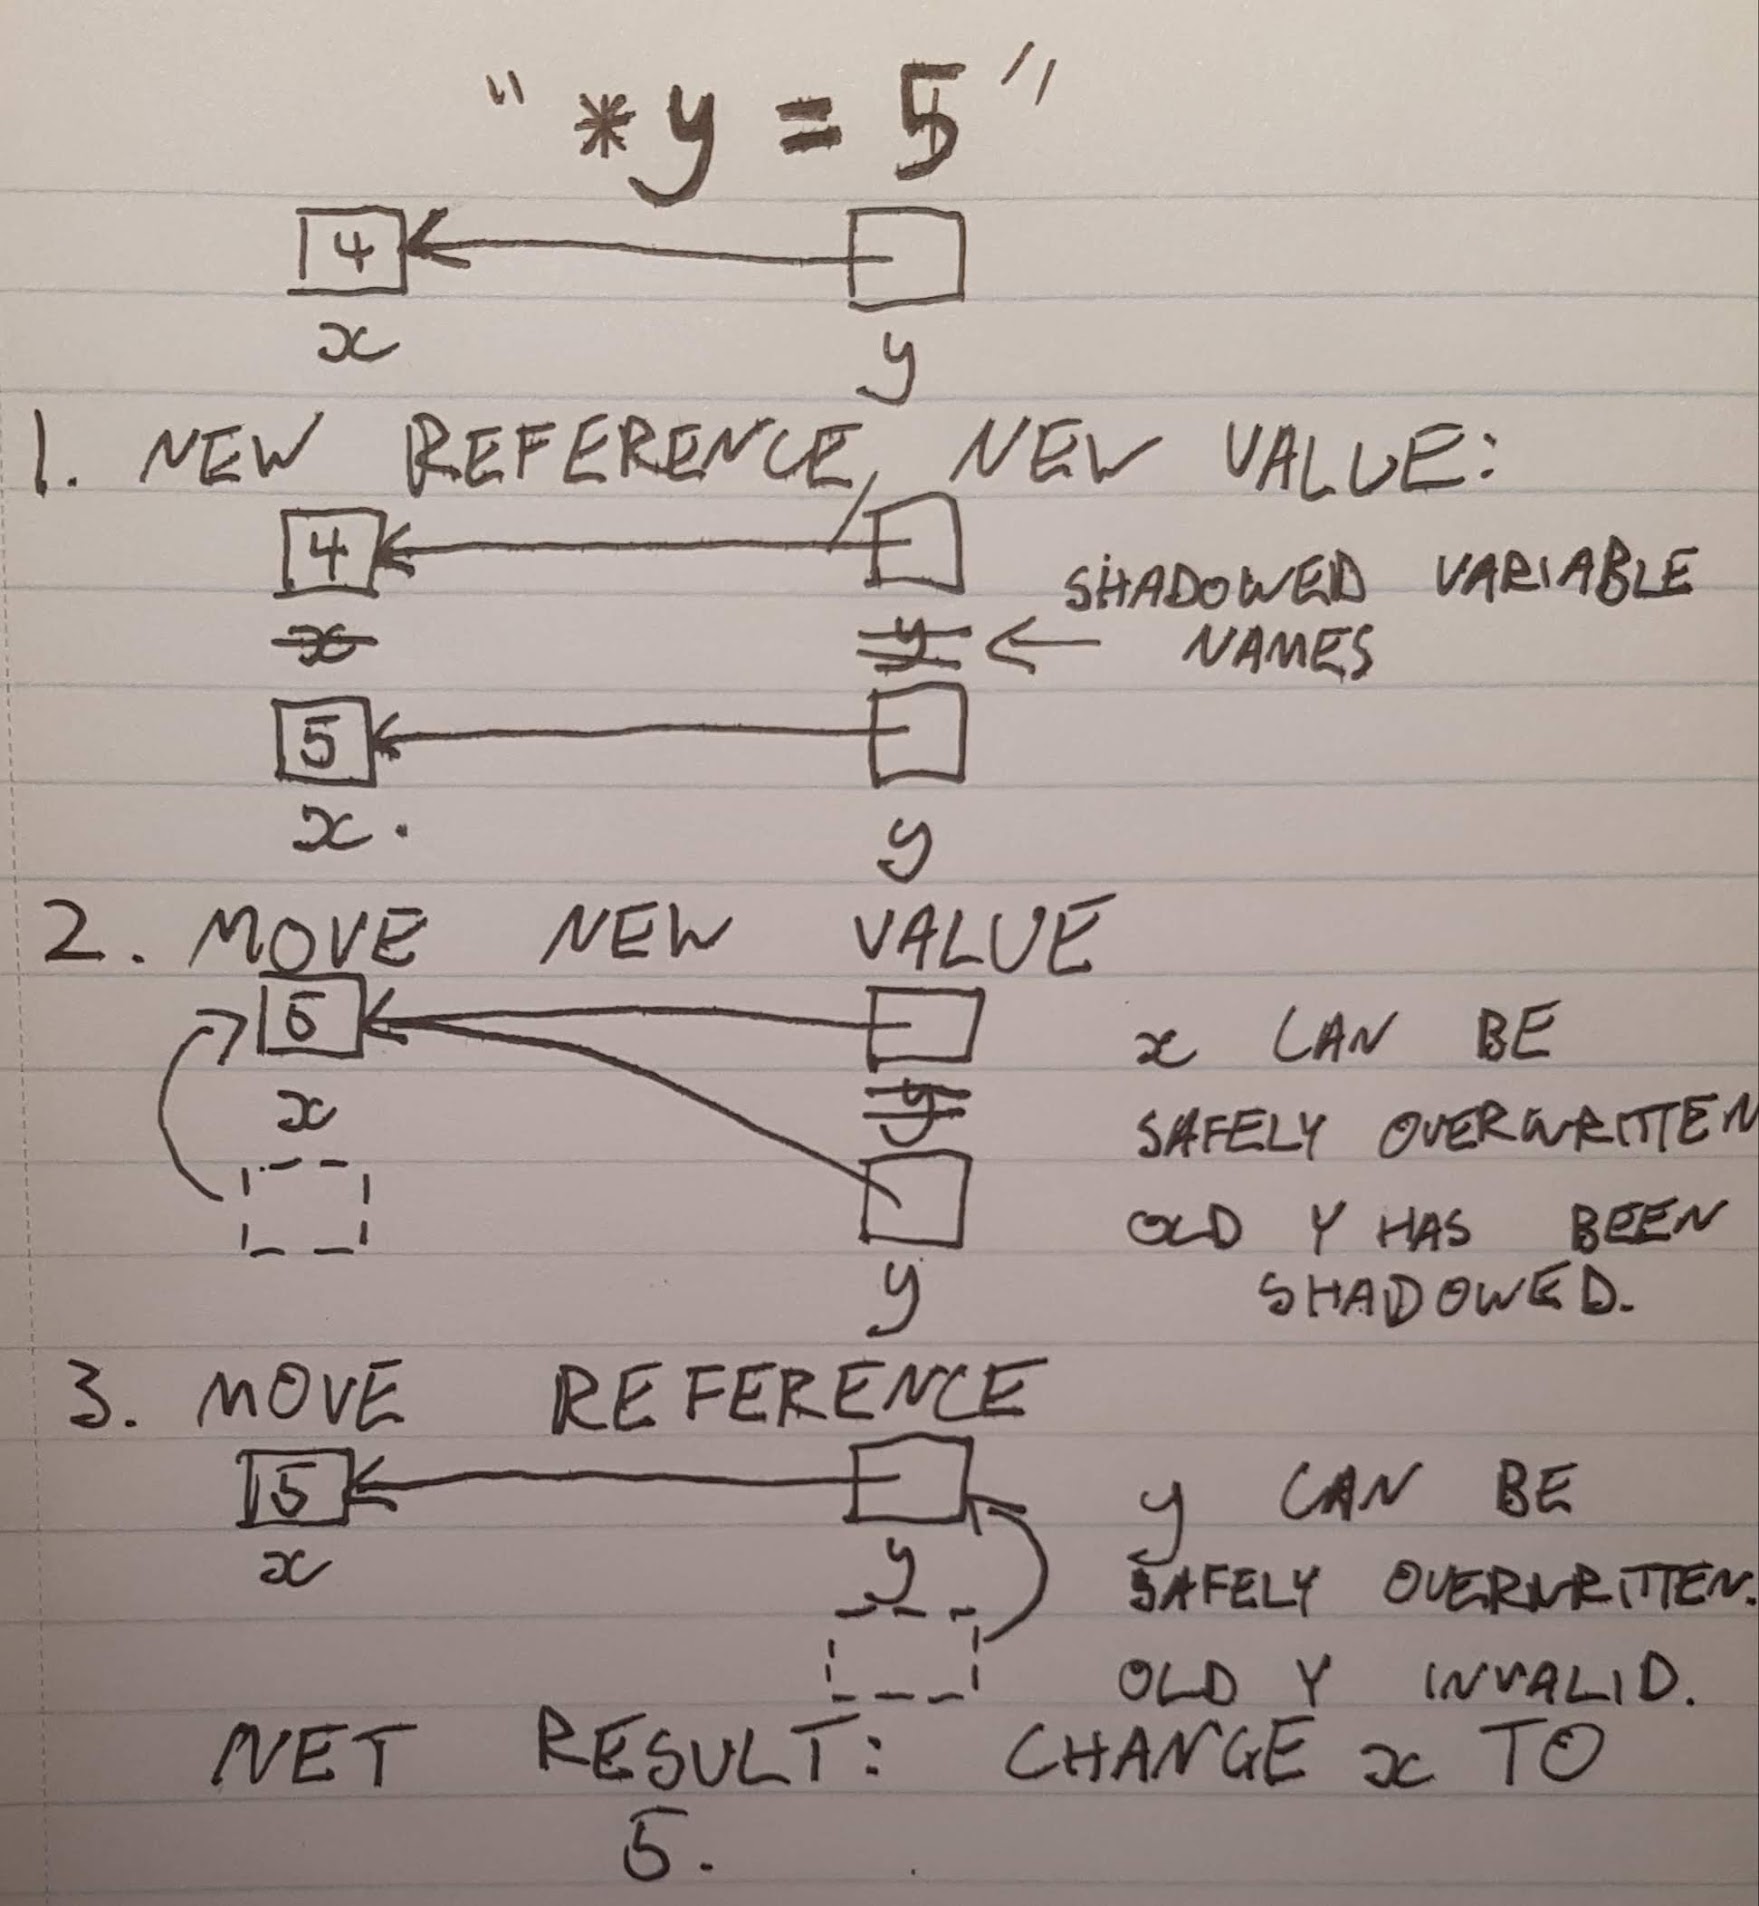 "*y = 5"
4
x y
1. NEW REFERENCE, NEW VALUE:
4
x y ← SHADOWED VARIABLE
NAMES
5
x. y
2. MOVE NEW VALUE
5
x
y
x CAN BE
SAFELY OVERWRITTEN
OLD Y HAS BEEN
SHADOWED.
y
3. MOVE REFERENCE
5
x y
y CAN BE
SAFELY OVERWRITTEN.
OLD Y INVALID.
NET RESULT: CHANGE x TO
5.